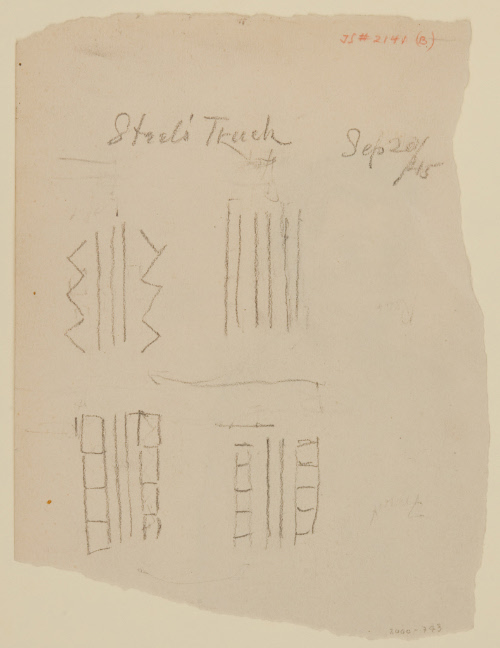 JS#2140 (B.)
Steel's Truck
Sep 20/
15
2000-793